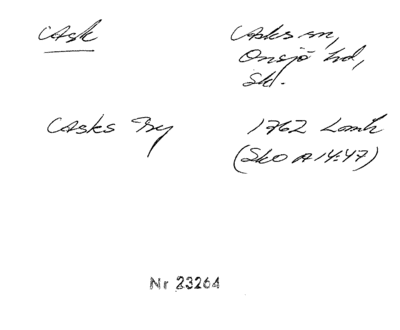 Ask
Asks sn,
Onsjö hd,
Sk.
Asks by
1762 Lomh
(SkO A 14:47)
Nr 23264